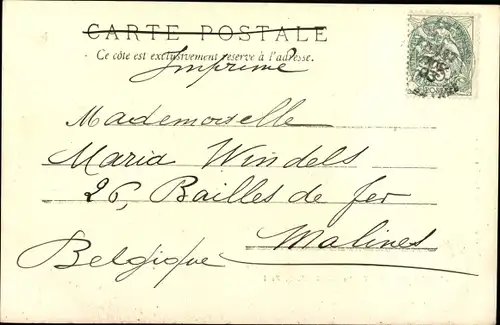 CARTE POSTALE
Ce côté est exclusivement réservé à l'adresse.
Imprimé
Mademoiselle
Maria Windels
26, Bailles de fer
Malines
Belgique